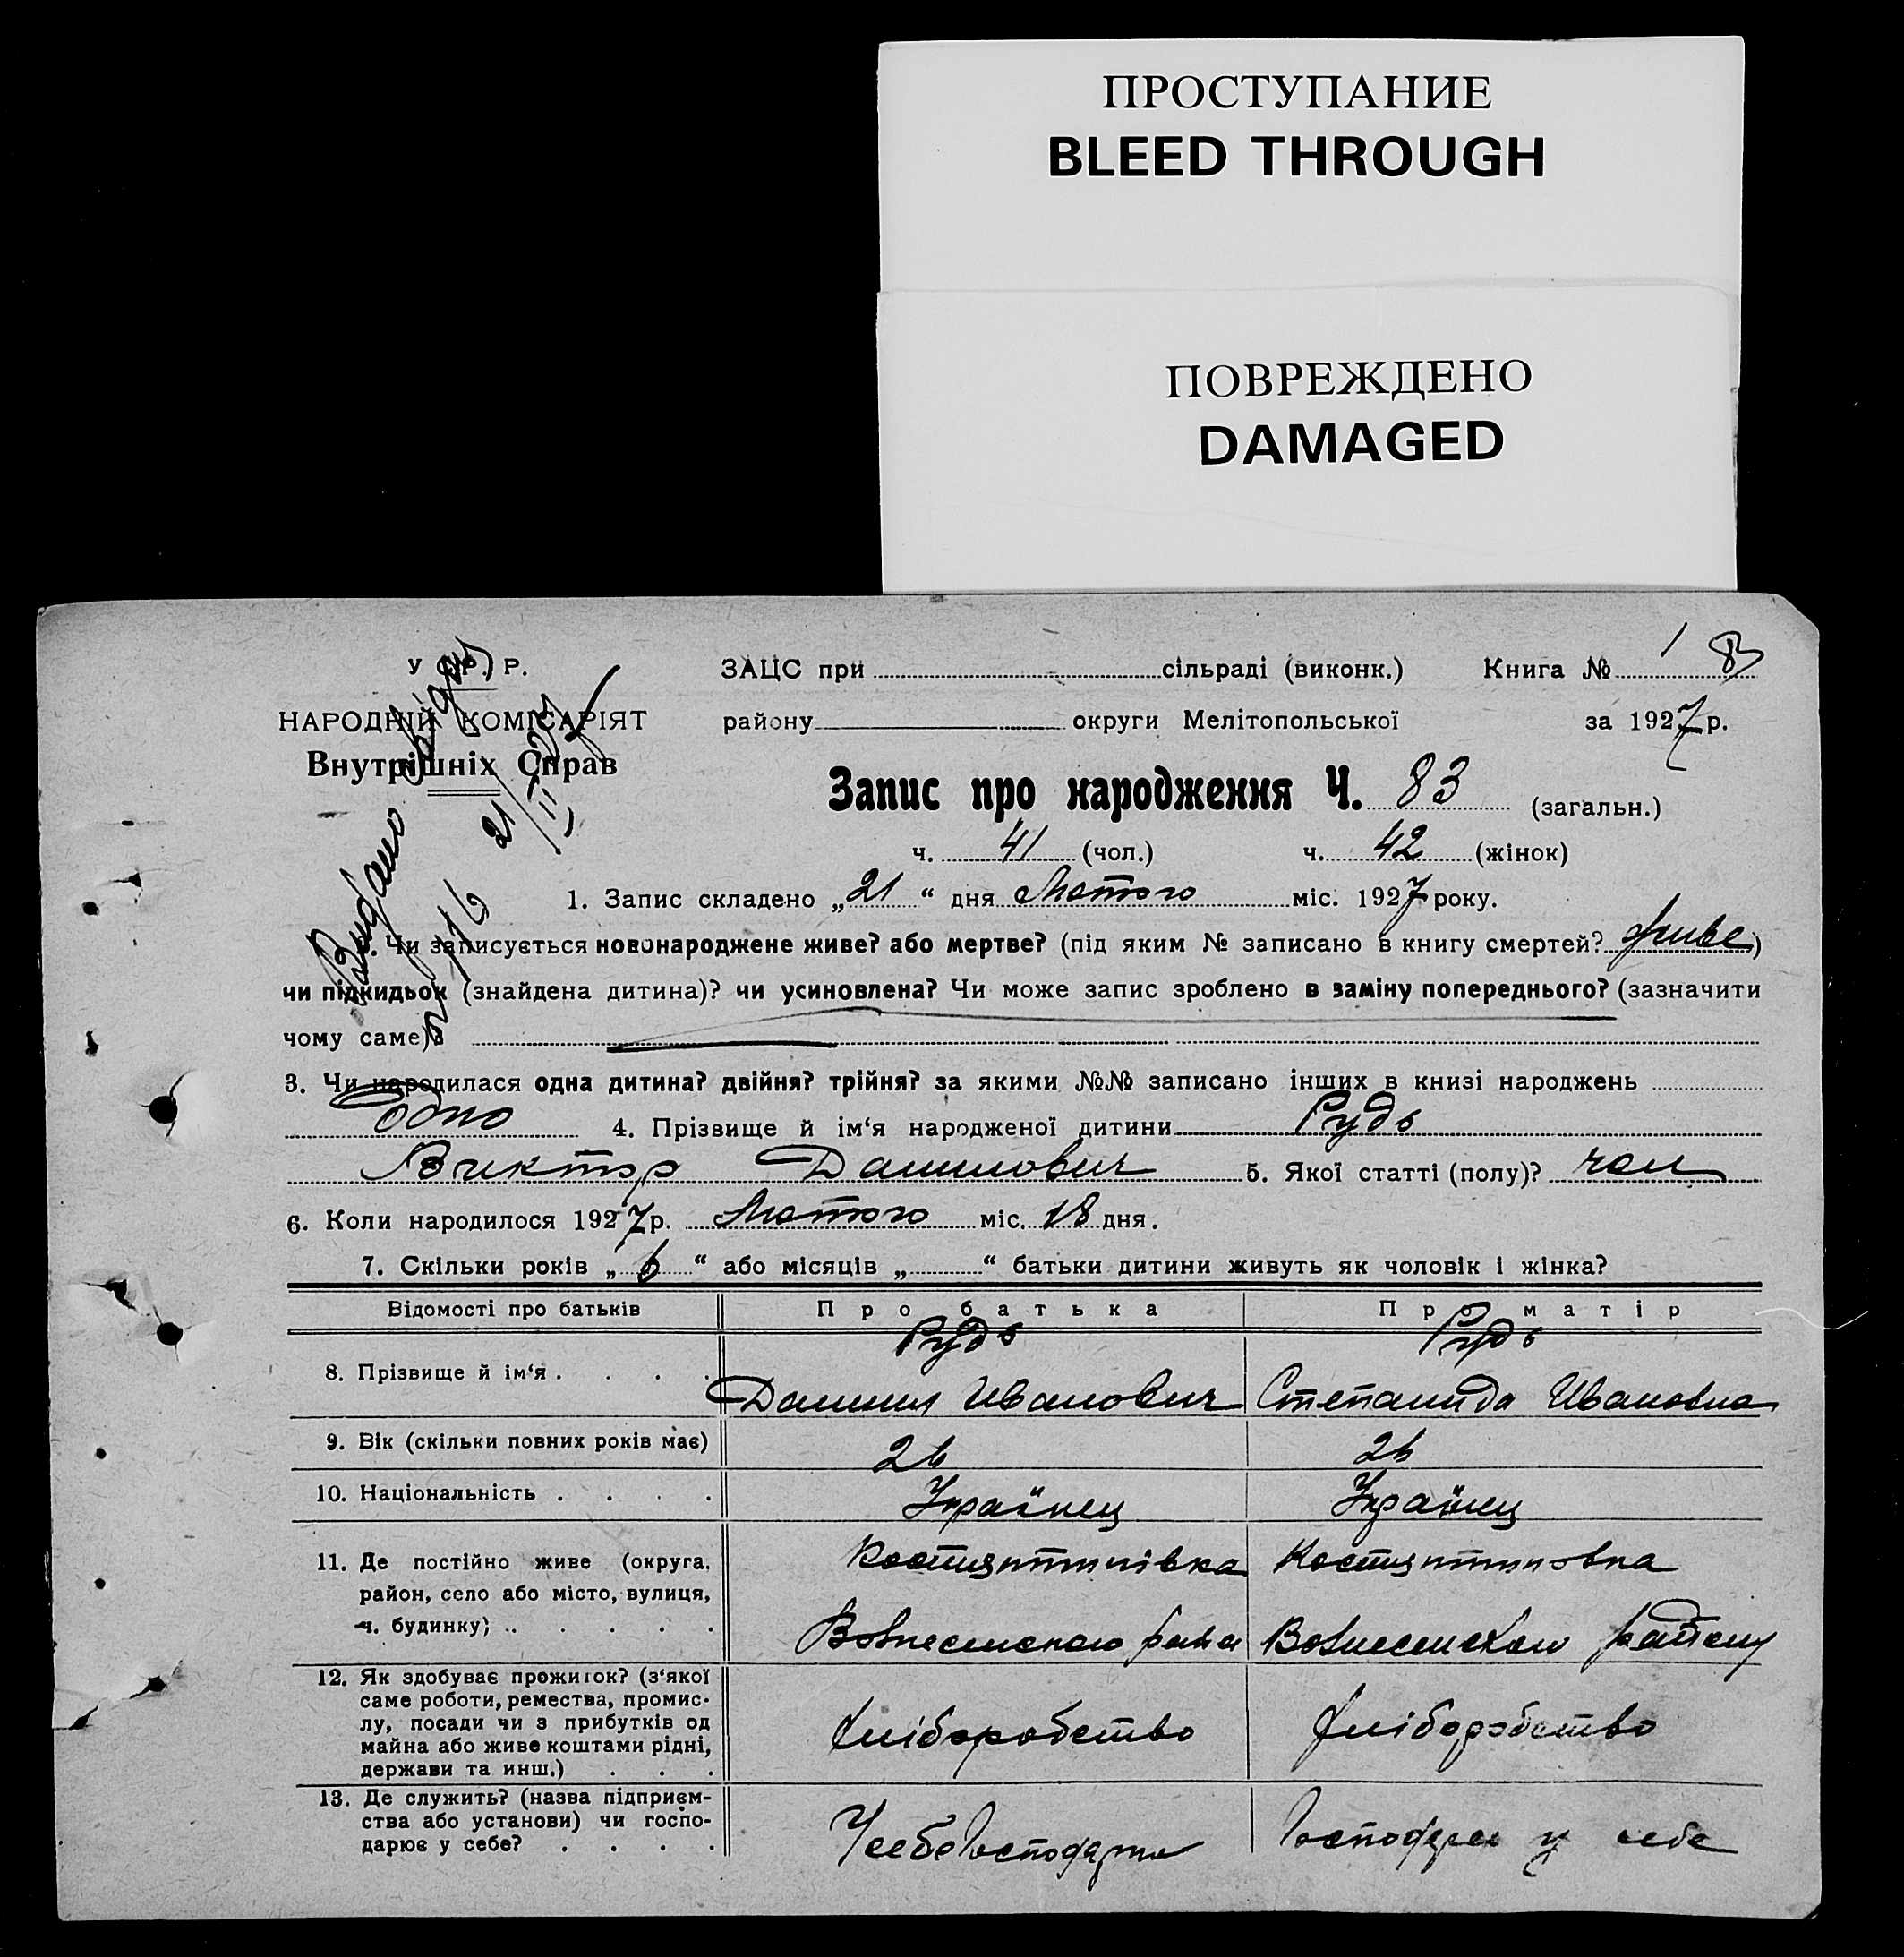 ПРОСТУПАНИЕ
BLEED THROUGH
ПОВРЕЖДЕНО
DAMAGED
У С. Р. Р.
ЗАЦС при сільраді (виконк.) Книга № 1
НАРОДНІЙ КОМІСАРІЯТ
району округи Мелітопольської за 1927 р.
Внутрішніх Справ
Запис про народження Ч. 83 (загальн.)
ч. 41 (чол.) ч. 42 (жінок)
1. Запис складено „21“ дня Лютого міс. 1927 року.
Чи записується новонароджене живе? або мертве? (під яким № записано в книгу смертей? живе)
чи підкидьок (знайдена дитина)? чи усиновлена? Чи може запис зроблено в заміну попереднього? (зазначити
чому саме)
3. Чи народилася одна дитина? двійня? трійня? за якими №№ записано інших в книзі народжень
Одно 4. Прізвище й ім‘я народженої дитини Рудь
Виктор Данилович 5. Якої статті (полу)? чол
6. Коли народилося 1927 р. Лютого міс. 18 дня.
7. Скільки років „6“ або місяців „ “ батьки дитини живуть як чоловік і жінка?
Відомості про батьків Про батька Про матір
8. Прізвище й ім‘я . . . . Рудь Рудь
Данил Иванович Степанида Ивановна
9. Вік (скільки повних років має) 26 26
10. Національність . . . . Українец Українец
11. Де постійно живе (округа, район, село або місто, вулиця, ч. будинку) Костянтинівка Костянтиновка
Вознесенского райо Вознесенского району
12. Як здобуває прожиток? (з‘якої
саме роботи, ремества, промис-
лу, посади чи з прибутків од
майна або живе коштами рідні,
держави та инш.) . . . Хліборобство Хліборобство
13. Де служить? (назва підприєм-
ства або установи) чи госпо-
дарює у себе? . . . . У себе господарю Господарює у себе